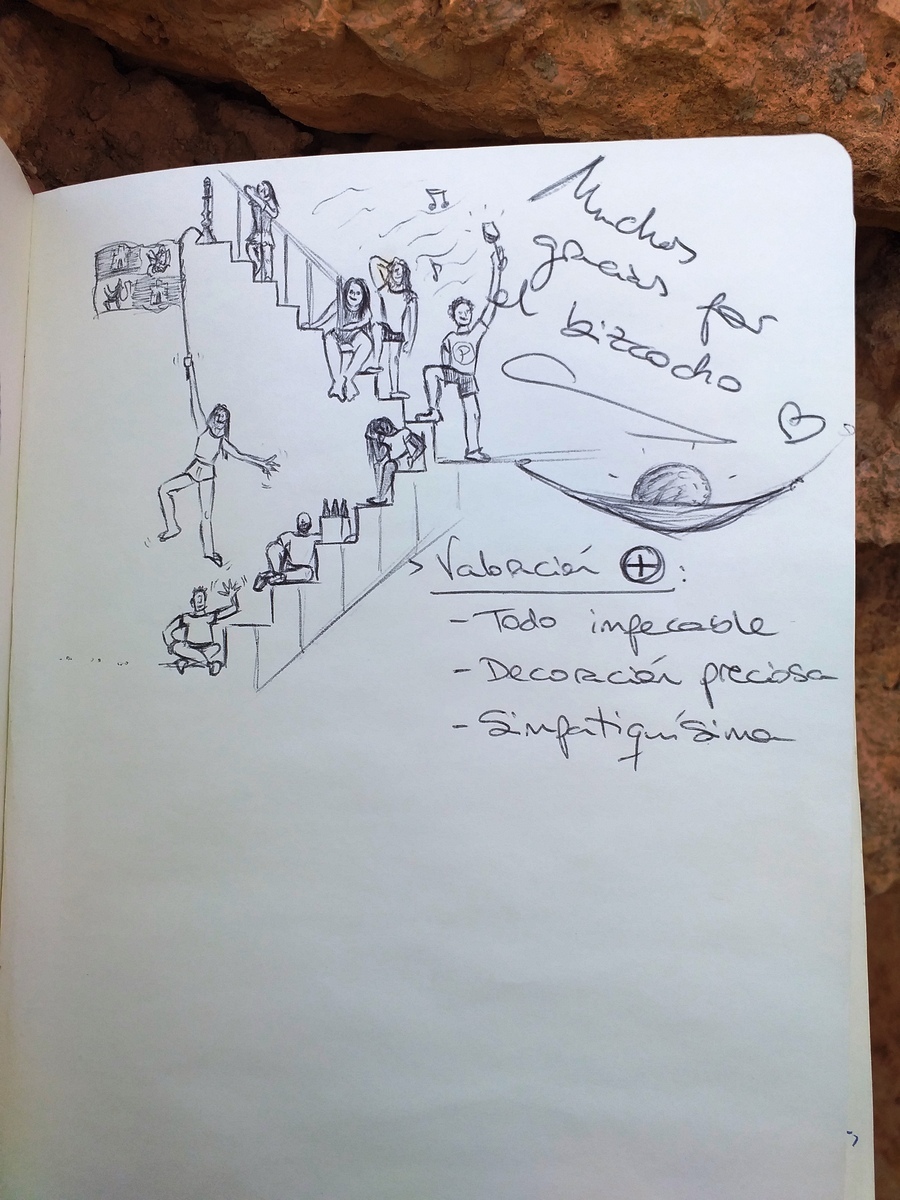 Muchas
gracias por
el bizcocho
Valoración ⊕:
- Todo impecable
- Decoración preciosa
- Simpatiquísima
P